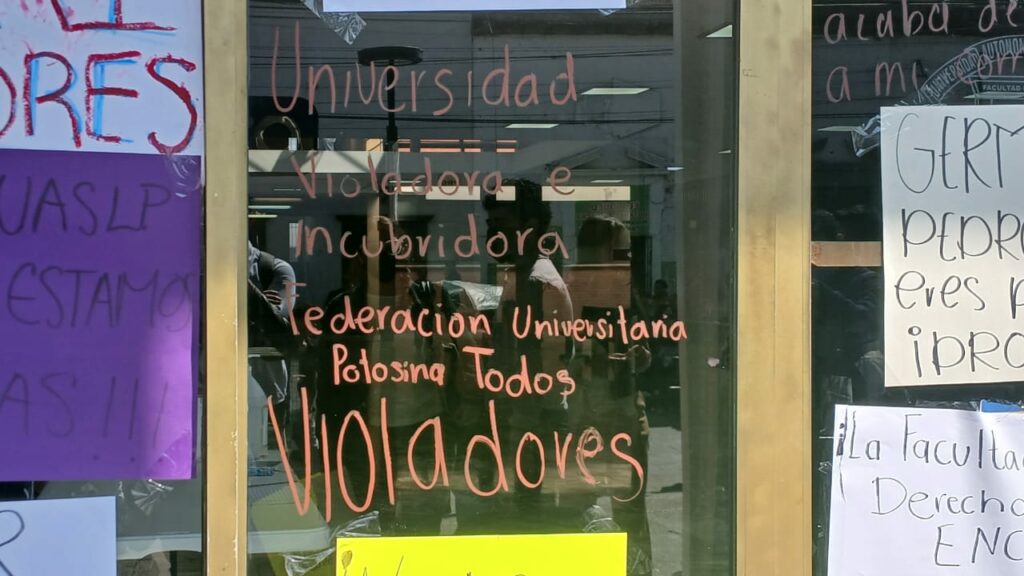 ORES
UASLP
ESTAMOS
AS!!!
Universidad
Violadora e
incubridora
Federación Universitaria
Potosina Todos
Violadores
acaba de
a mi
AUTONOMA
FACULTAD
GERM
PEDRO
eres
¡PRO
¡La Faculta
Derecho
ENC